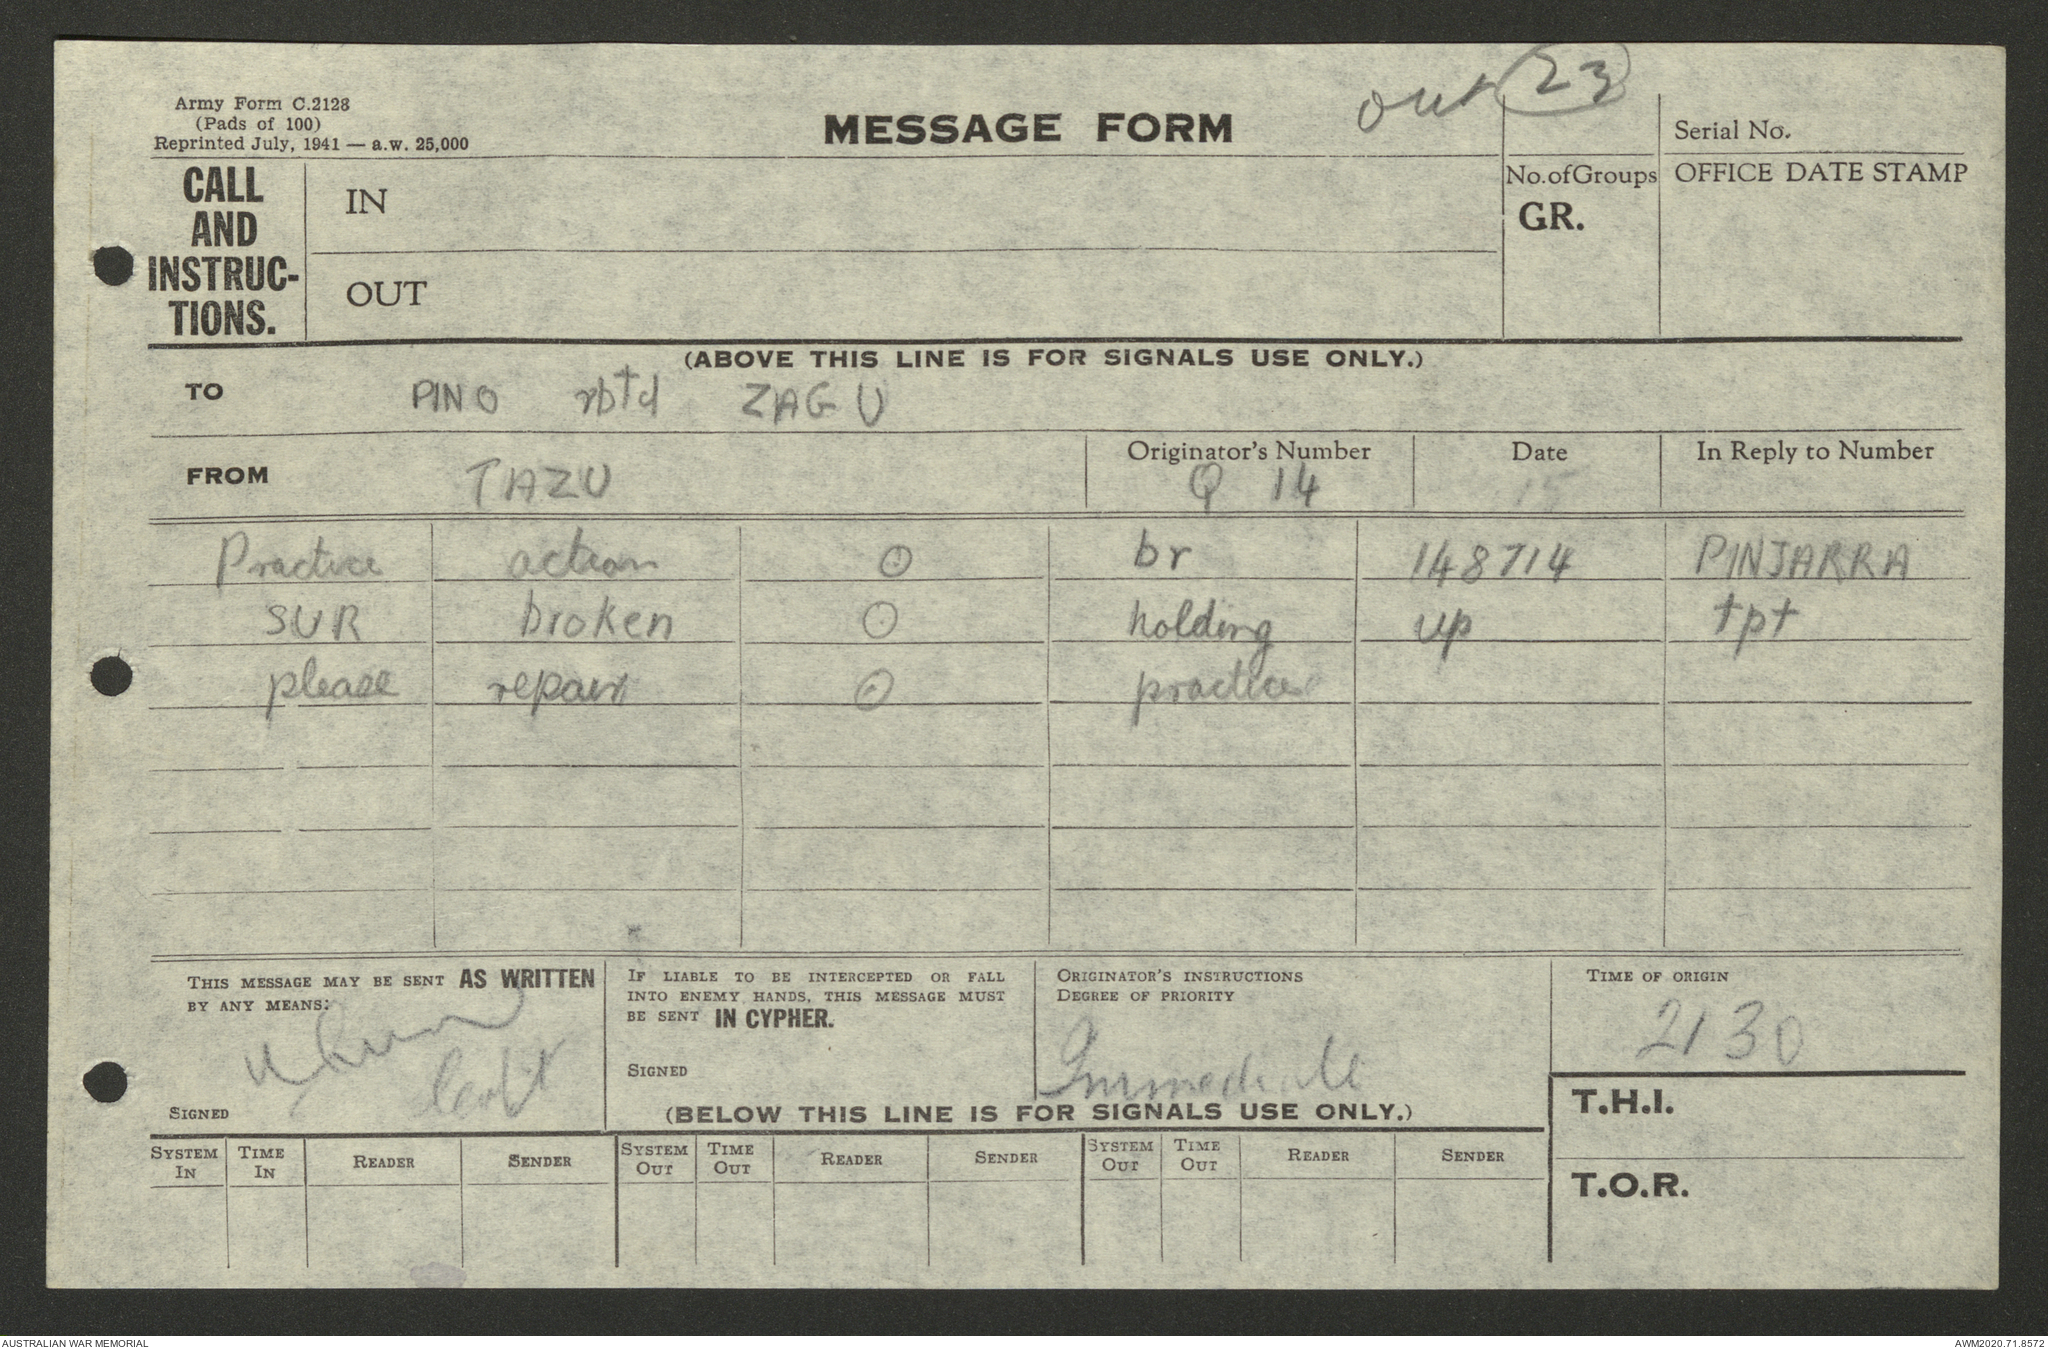 out 23
Army Form C.2128
(Pads of 100)
Reprinted July, 1941 — a.w. 25,000
MESSAGE FORM
Serial No.
CALL AND INSTRUC-TIONS.
IN
OUT
No.ofGroups
GR.
OFFICE DATE STAMP
(ABOVE THIS LINE IS FOR SIGNALS USE ONLY.)
TO PINO rbtd ZAGU
FROM TAZU
Originator's Number Q 14
Date 15
In Reply to Number
Practice action ⊙ br 148714 PINJARRA
SUR broken ⊙ holding up tpt
please repair ⊙ practice
THIS MESSAGE MAY BE SENT AS WRITTEN
BY ANY MEANS:
SIGNED
IF LIABLE TO BE INTERCEPTED OR FALL
INTO ENEMY HANDS, THIS MESSAGE MUST
BE SENT IN CYPHER.
SIGNED
ORIGINATOR'S INSTRUCTIONS
DEGREE OF PRIORITY
Immediate
TIME OF ORIGIN
2130
(BELOW THIS LINE IS FOR SIGNALS USE ONLY.)
T.H.I.
T.O.R.
SYSTEM IN TIME IN READER SENDER SYSTEM OUT TIME OUT READER SENDER SYSTEM OUT TIME OUT READER SENDER
AUSTRALIAN WAR MEMORIAL
AWM2020.71.8572